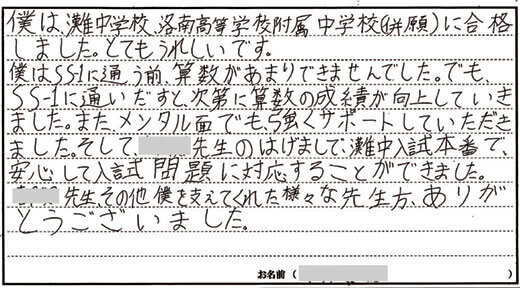 僕は、灘中学校、洛南高等学校附属中学校(併願)に合格
しました。とてもうれしいです。
僕はSS-1に通う前、算数があまりできませんでした。でも、
SS-1に通いだすと、次第に算数の成績が向上していき
ました。また、メンタル面でも、強くサポートしていただき
ました。そして 先生のはげまして、灘中入試本番で、
安心して入試問題に対応することができました。
先生、その他僕を支えてくれた様々な先生方、ありが
とうございました。
お名前( )